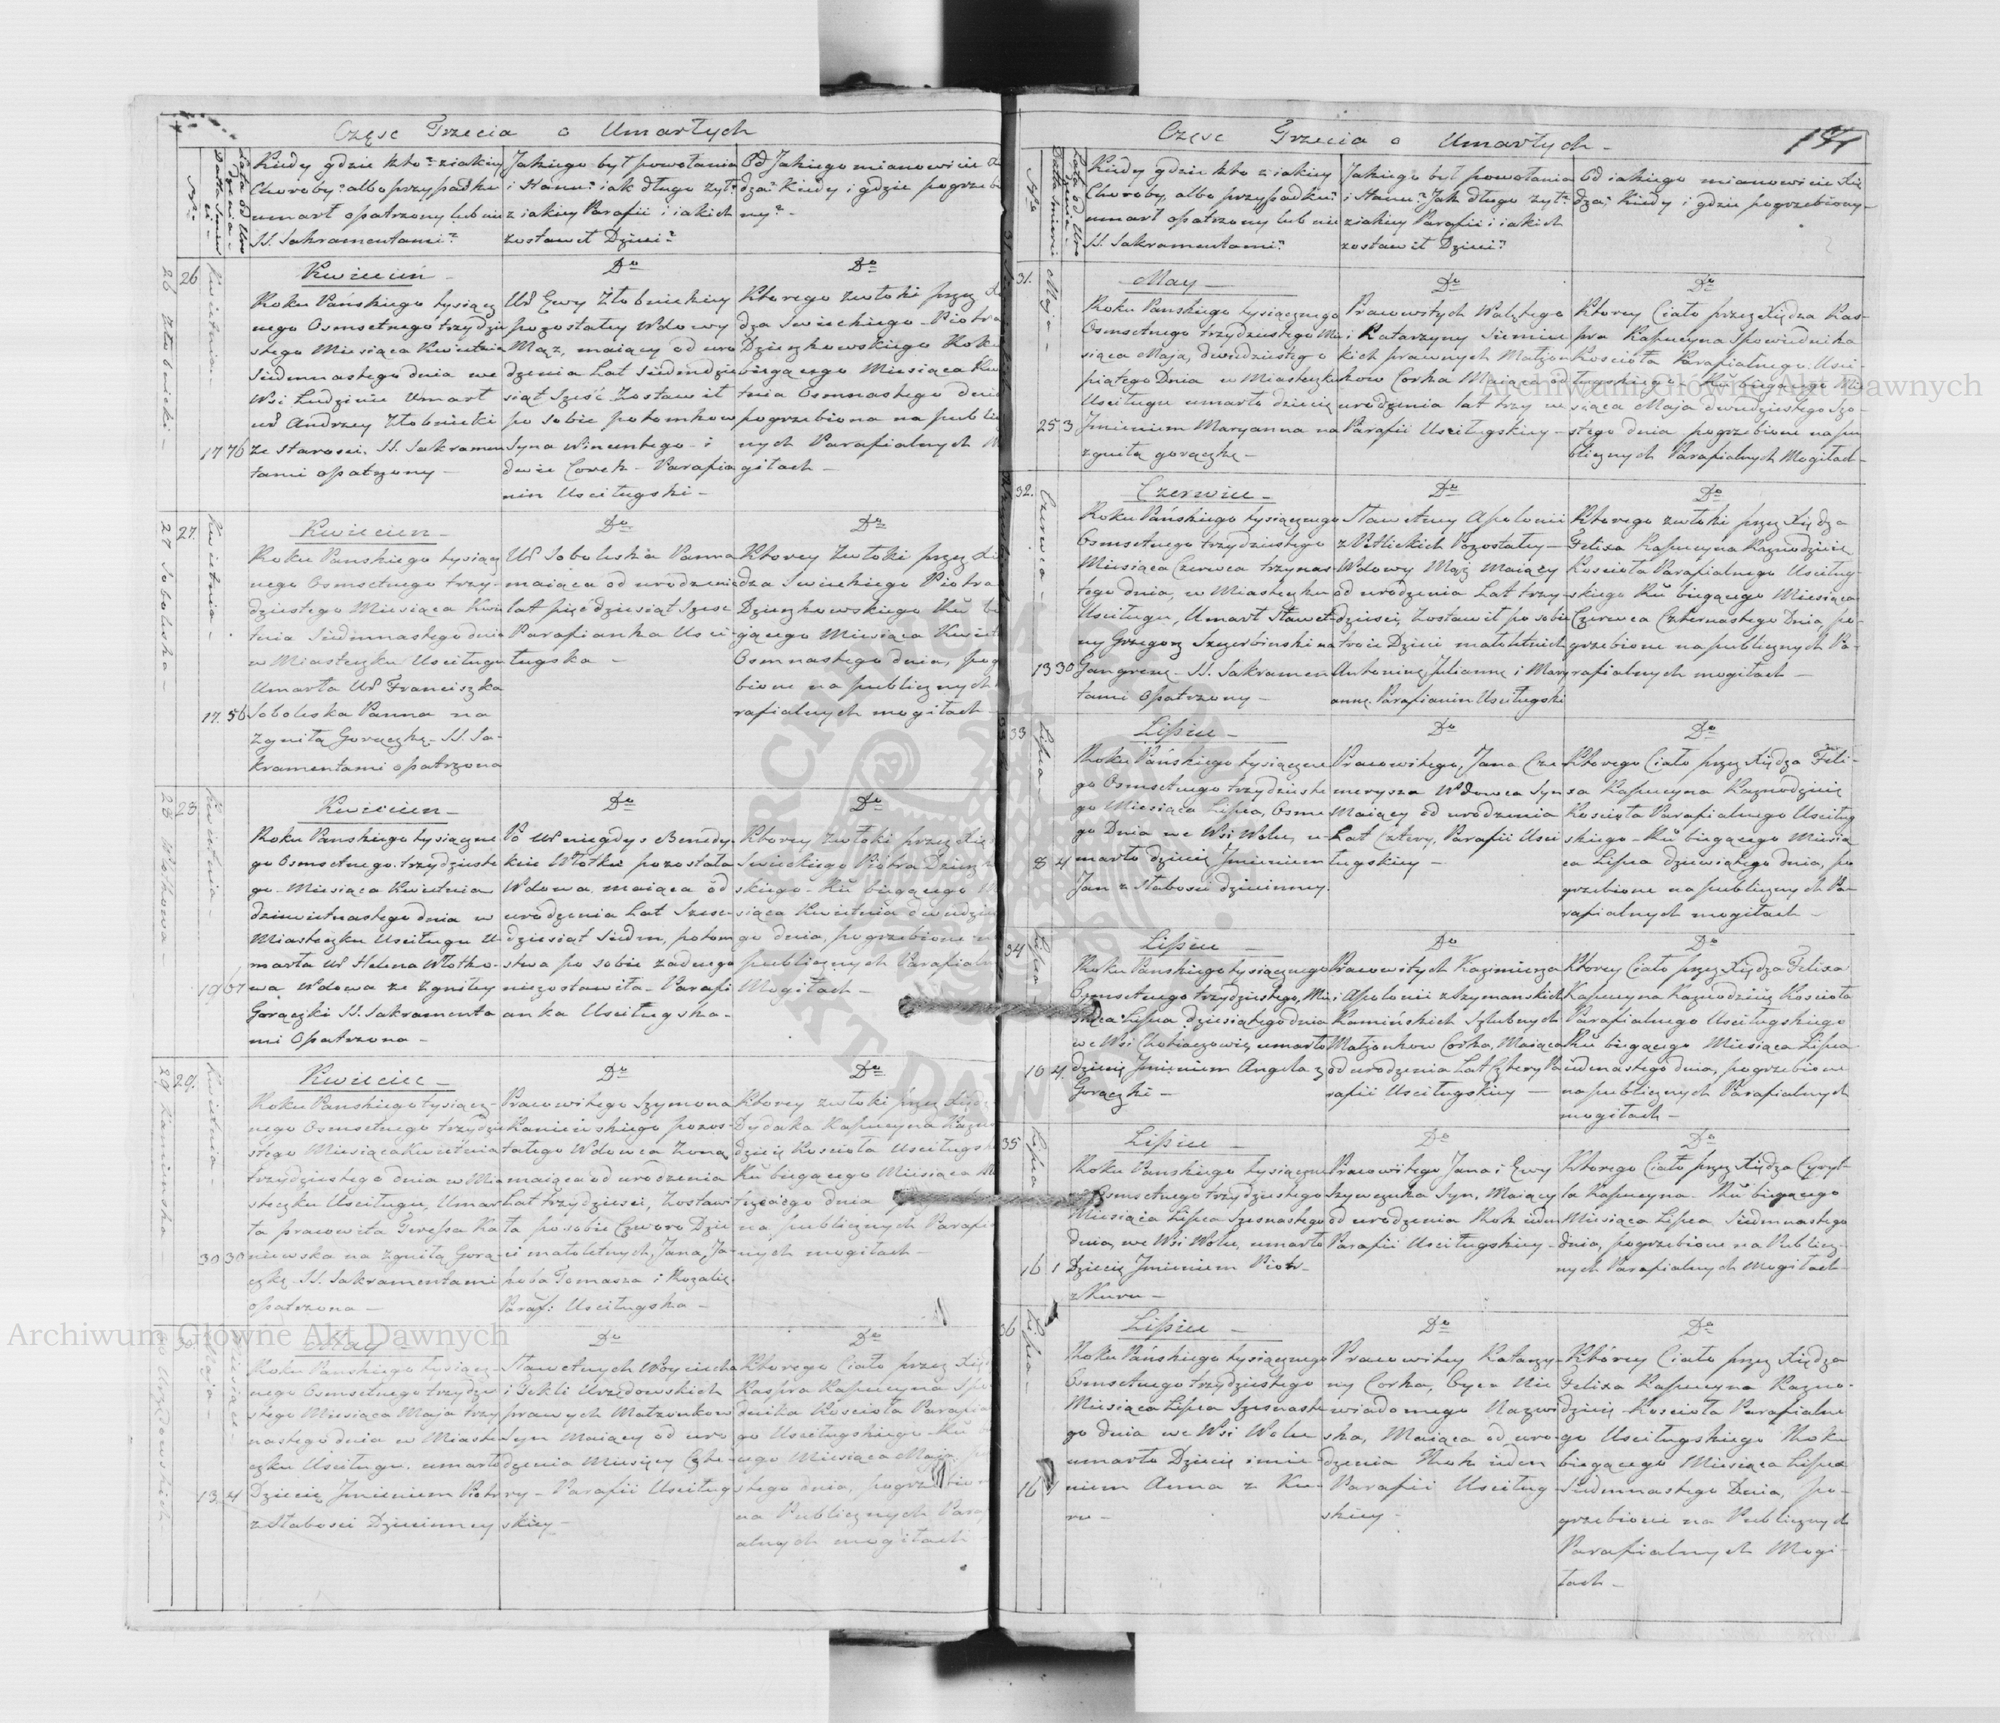 Częsc Trzecia o Umarłych
No
Data Smierci
Lata od Urodzenia
Kiedy gdzie kto? z iakiey
Choroby? albo przypadku
umarł opatrzony lub nie
SS. Sakramentami?
Jakiego był powołania
i Stanu? iak długo żył?
z iakiey Parafii i iakich
zostawił Dzieci?
Od Jakiego mianowicie
dza? Kiedy i gdzie pogrzebio
ny?
26 Złobnicki
26
Kwietnia
17 76
Kwiecień
Roku Pańskiego tysiącz
nego Osmsetnego trzydzie
stego Miesiąca Kwietnia
Siedmnastego dnia we
Wsi Ludzinie Umarł
ur Andrzey Złobnicki
ze starosci. SS. Sakramen
tami opatrzony
Do
Ur Ewy Złobnickiey
pozostałey Wdowy
Mąż, maiący od uro
dzenia Lat Siedmdzie
siąt Szesć Zostawił
po sobie potomków
Syna Wincentego i
dwie Corek Parafia
nin Usciługski
Do
Ktorego zwłoki przez
dza Swieckiego Piotra
Dzieszkowskiego Roku
biegącego Miesiąca Kwie
tnia Osmnastego dnia
pogrzebiona na publicz
nych Parafialnych Mo
giłach
27 Soboleska
27.
Kwietnia
17. 56
Kwiecien
Roku Panskiego tysiącz
nego Osmsetnego trzy-
dziestego Miesiąca Kwie
tnia Siedmnastego dnia
w Miasteczku Usciługu
Umarła Ur Franciszka
Soboleska Panna na
Zgniłą Gorączkę. SS. Sa-
kramentami opatrzona
Do
Ur Soboleska Panna
maiąca od urodzenia
lat pięćdziesiąt Szesc
Parafianka Usci-
ługska
Do
Ktorey Zwłoki przez
dza Swieckiego Piotra
Dzieszkowskiego Ru bie
gącego Miesiąca Kwiet
Osmnastego dnia, pog
bione na publicznych
rafialnych mogiłach
28
Kwietnia
19 67
Kwiecien
Roku Panskiego tysiączne
go Osmsetnego trzydzieste
go Miesiąca Kwietnia
dziewietnastego dnia w
Miasteczku Usciługu U-
marła Ur Helena Włotko-
wa Wdowa ze Zgniłey
Gorączki SS. Sakramenta
mi Opatrzona
Do
Po Ur niegdys Benedy-
kcie Włotku pozostała
Wdowa maiąca od
urodzenia Lat Szesc-
dziesiąt Siedm, potom
stwa po sobie żadnego
niezostawiła. Parafi
anka Usciługska.
Do
Ktorey Zwłoki przez Xię
Swieckiego Piotra Dziesz
skiego Ru biegącego
siąca Kwietnia dwudzie
go dnia, pogrzebione
publicznych Parafial
Mogiłach
29
29.
Kwietnia
30 30
Kwieciec
Roku Panskiego tysiącz-
nego Osmsetnego trzydzie
stego Miesiąca Kwietnia
trzydziestego dnia w Mia
steczku Usciługu, Umar
ła pracowita Teressa Ka
niewska na Zgniłą Gorą
czkę. SS. Sakramentami
opatrzona
Do
Pracowitego Szymona
Kaniewskiego pozos-
tałego Wdowca Żona
maiąca od urodzenia
Lat trzydziesci, Zostawi
ła po sobie Czworo Dzie
ci małoletnych, Jana, Ja-
koba Tomasza i Rozalię.
Paraf: Usciługska
Do
Ktorey zwłoki przez Xię
Dydaka Kapucyna Kazno
dzieię Kościoła Usciługs
Ru biegącego Miesiąca
trzeciego dnia
na publicznych Parafi
nych mogiłach
30.
Maja
13 4
Miesiące
May
Roku Panskiego tysiącz-
nego Osmsetnego trzydzie
stego Miesiąca Maja trzy
nastego dnia w Miaste
czku Usciługu. umarło
Dziecię Jmieniem Piotr
z Słabosci Dziecinney
Do
Sławetnych Woyciecha
i Tekli Urzędowskich
prawych Małżonkow
Syn Maiący od uro
dzenia Miesięcy Czte-
ry Parafii Usciług
skiey
Do
Ktorego Ciało przez Xię
Kaspra Kapucyna Spo
dnika Kościoła Parafia
go Usciługskiego Ru
cego Miesiąca Maja
stego dnia, pogrzebion
na Publicznych Para
alnych mogiłach
Częsc Trzecia o Umarłych
No
Data Smierci
Lata od Urodzenia
Kiedy gdzie kto z iakiey
Choroby, albo przypadku?
umarł opatrzony lub nie
SS. Sakramentami?
Jakiego był powołania
i Stanu? Jak długo żył?
z iakiey Parafii i iakich
zostawił Dzieci?
Od iakiego mianowicie Xię
dza? Kiedy i gdzie pogrzebiony
31.
Maja
25 3
May
Roku Panskiego tysiącznego
Osmsetnego trzydziestego Mie
siąca Maja, dwudziestego
piątego Dnia w Miasteczku
Usciługu umarło dziecię
Jmieniem Maryanna na
zgniłą gorączkę
Do
Pracowitych Walętego
i Katarzyny Siemin
kich prawnych Małżon
kow Corka Maiąca od
urodzenia lat trzy
Parafii Usciługskiey
Do
Ktorey Ciało przez Xiędza Kas-
pra Kapucyna Spowiednika
Kościoła Parafialnego Usci-
ługskiego Ru biegącego Mie
siąca Maja dwudziestego Szo-
stego dnia pogrzebione na pu
blicznych Parafialnych Mogiłach
32.
Czerwca
13 30
Czerwiec
Roku Pańskiego tysiącznego
Osmsetnego trzydziestego
Miesiąca Czerwca trzynas
tego dnia, w Miasteczku
Usciługu, Umarł Sławet-
ny Grzegorz Szczerbinski na
Gangrenę SS. Sakramen
tami Opatrzony
Do
Sławetney Apolonii
z Pozostałey
Wdowy Mąż Maiący
od urodzenia Lat trzy-
dziesci, Zostawił po sobie
troie Dzieci małoletnich
Antoninę, Juliannę i Mary
annę. Parafianin Usciługski
Do
Ktorego zwłoki przez Xiędza
Felixa Kapucyna Kaznodzieię
Kościoła Parafialnego Usciług-
skiego Ru biegącego Miesiąca
Czerwca Czternastego Dnia, po-
grzebione na publicznych Pa-
rafialnych mogiłach
33
Lipca
8 4
Lipiec
Roku Pańskiego tysiączne
go Osmsetnego trzydzieste
go Miesiąca Lipca, Osme
go Dnia we Wsi Wolu, u-
marło dziecię Jmieniem
Jan z Słabosci dziecinney.
Do
Pracowitego, Jana Cze
merysza Wdowca Syn
Maiący od urodzenia
Lat Cztery, Parafii Usci
ługskiey
Do
Ktorego Ciało przez Xiędza Feli-
xa Kapucyna Kaznodzieię
Kościoła Parafialnego Usciług
skiego Ru biegącego Miesią
ca Lipca dziewiątego dnia, po
grzebione na publicznych Pa-
rafialnych mogiłach
34
Lipca
10 4
Lipiec
Roku Panskiego tysiącznego
Osmsetnego trzydziestego, Mie
siąca Lipca dziesiątego dnia
we Wsi umarło
dziecię Jmieniem Angela z
Gorączki
Do
Pracowitych Kazimierza
i Apolonii z Szymanskich
Kamińskich Szlubnych
Małżonkow Corka, Maiąca
od urodzenia Lat Cztery Pa
rafii Usciługskiey
Do
Ktorey Ciało przez Xiędza Felixa
Kapucyna Kaznodzieię Kościoła
Parafialnego Usciługskiego
Ru biegącego Miesiąca Lipca
iedenastego dnia, pogrzebione
na publicznych Parafialnych
mogiłach
35
Lipca
16 1
Lipiec
Roku Panskiego tysiączne
Osmsetnego trzydziestego
Miesiąca Lipca Szesnastego
dnia, we Wsi Wolu, umarło
Dziecię Jmieniem Piotr
z Kuru
Do
Pracowitego Jana i Ewy
Szewczuka Syn, Maiący
od urodzenia Rok ieden
Parafii Usciługskiey
Do
Ktorego Ciało przez Xiędza Cyryl-
la Kapucyna Ru biegącego
Miesiąca Lipca Siedmnastego
dnia, pogrzebione na Publicz-
nych Parafialnych Mogiłach
36
Lipca
16 1
Lipiec
Roku Pańskiego tysiącznego
Osmsetnego trzydziestego
Miesiąca Lipca Szesnaste
go dnia we Wsi Wolu
umarło Dziecię imie
niem Anna z Ku-
ru
Do
Pracowitey Katarzy-
ny Corka, Oyca Nie
wiadomego Nazwi
ska, Maiąca od uro-
dzenia Rok ieden
Parafii Usciług-
skiey
Do
Którey Ciało przez Xiędza
Felixa Kapucyna Kazno-
dzieię Kościoła Parafialne
go Usciługskiego Roku
biegącego Miesiąca Lipca
Siedmnastego Dnia, po-
grzebione na Publicznych
Parafialnych Mogi-
łach
Archiwum Główne Akt Dawnych
Archiwum Główne Akt Dawnych